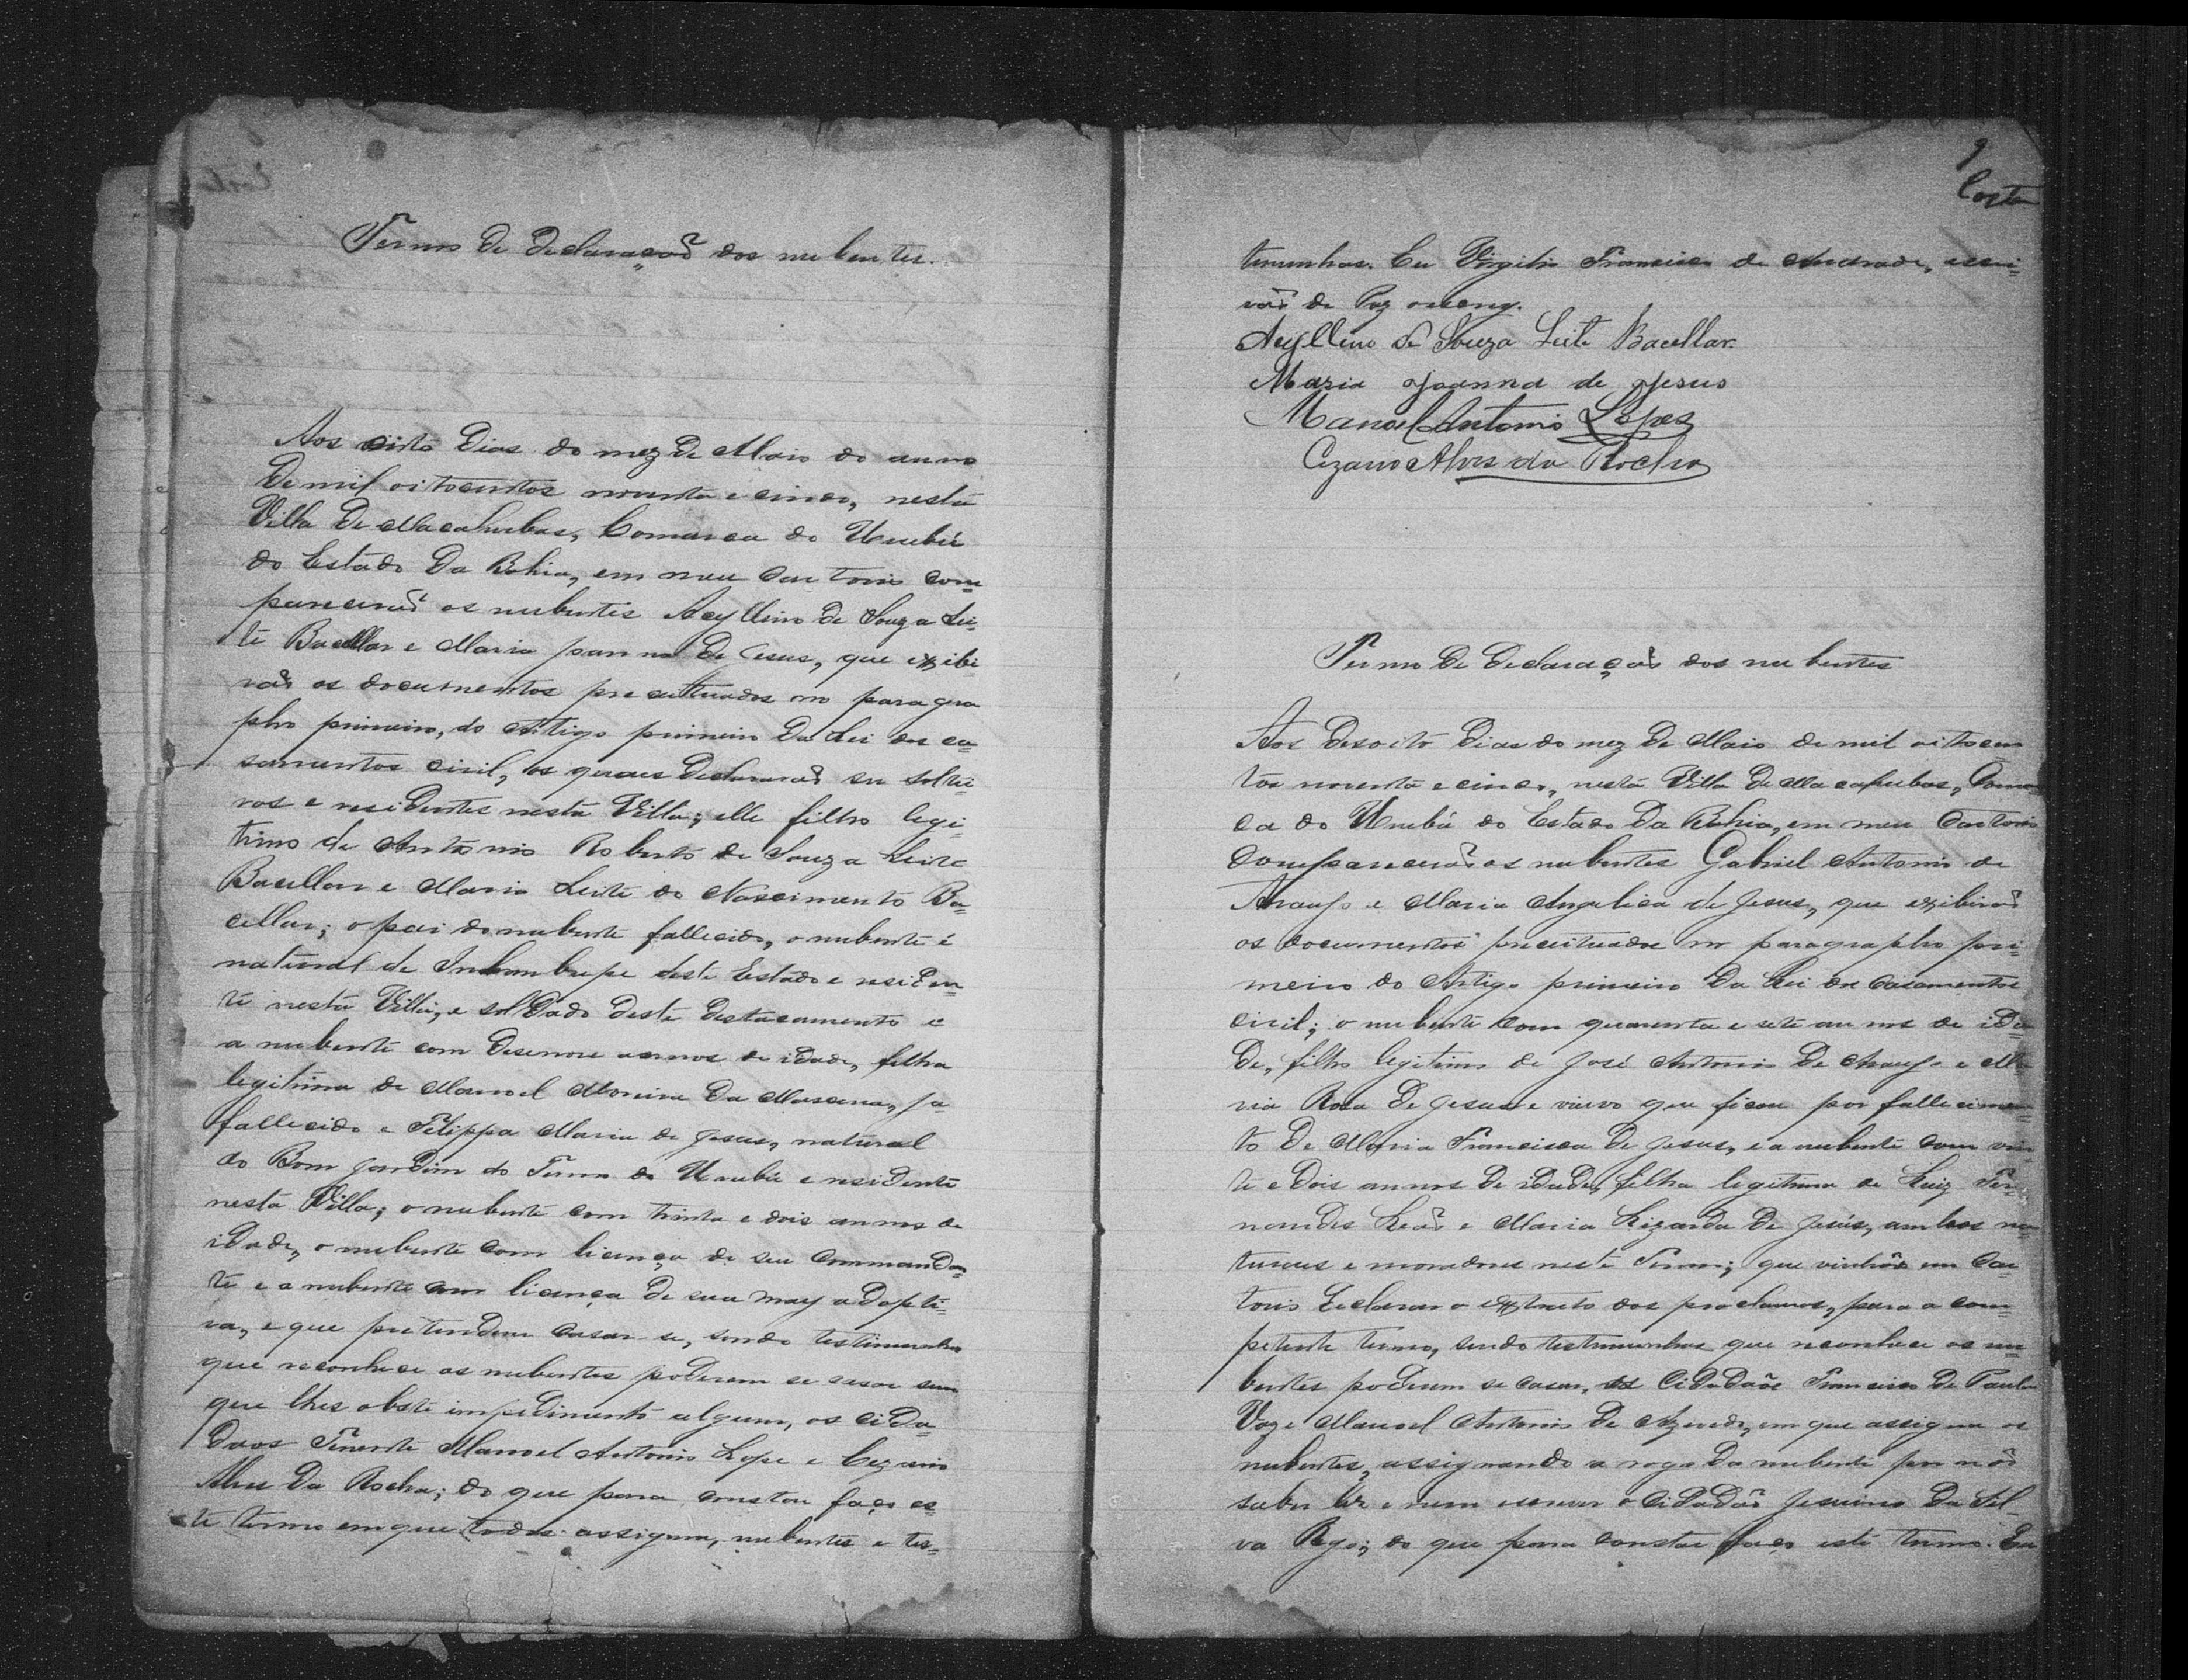 Termo de declaração dos nubentes.
Aos oito dias do mez de Maio do anno
de mil oitocentos noventa e cinco, nesta
Villa de Macahubas, Comarca do Urubú
do Estado da Bahia, em meu Cartorio com=
parecerão os nubentes Acyllino de Souza Lei=
te Bacellar e Maria Joanna de Jesus, que exibi
rão os documentos preceituados no paragra
pho primeiro, do Artigo primeiro da Lei dos ca=
samentos civil, os quaes declararão ser soltei=
ros e residentes nesta Villa; elle filho legi=
timo de Antonio Roberto de Souza Leite
Bacellar e Maria Leite do Nascimento Ba=
cellar; o pai do nubente fallecido, o nubente é
natural de Inhambupe deste Estado e residen=
te nesta Villa, e soldado deste destacamento e
a nubente com desenove annos de idade, filha
legitima de Manoel Moreira da ja
fallecido e Felippa Maria de Jesus, natural
do Bom Jardim do Termo do Urubú e residente
nesta Villa; o nubente com trinta e dois annos de
idade, o nubente com licença de seu commandan=
te e a nubente com licença de sua may adopti=
va, e que pretendem casar-se, sendo testimunhas
que reconhece os nubentes poderem se casar sem
que lhes obste impedimento algum, os cida=
daos Tenente Manoel Antonio Lope e Cezario
Alves da Rocha; do que para constar faço es=
te termo em que todos assignam, nubentes e tes=
9
Costa
temunhas. Eu Virgilio Francisco de Andrade, escri=
vão de Paz o
Acyllino de Souza Leite Bacellar.
Maria Joanna de Jesus
Manoel Antonio Lopes
Cezario Alves da Rocha
Termo de declaração dos nubentes
Aos desoito dias do mez de Maio de mil oitocen
tos noventa e cinco, nesta Villa de Macahubas, Comar
ca do Urubú do Estado da Bahia, em meu Cartorio
compareceram os nubentes Gabriel Antonio de
Araujo e Maria Angelica de Jesus, que exibirão
os documentos preceituados no paragrapho pri=
meiro do Artigo primeiro da Lei dos casamentos
civil; o nubente com quarenta e sete annos de ida
de, filho legitimo de José Antonio de Araujo e Ma
ria Rosa de Jesus e viuvo que ficou por fallecimen=
to de Maria Francisca de Jesus, e a nubente com vin=
te e dois annos de idade, filha legitima de Luiz Fer=
nandes Leão e Maria Lizarda de Jesus, ambos na=
turaes e moradores neste Termo; que vinhão em Car
torio declarar o extrato dos proclamos, para o com=
petente termo, sendo testemunhas que reconhece os nu=
bentes poderem se casar, os Cidadãos Francisco de Paula
Vaz e Manoel Antonio de Azevedo, em que assigna os
nubentes, assignando a rogo da nubente por não
saber ler e nem escrever o Cidadão Jesuino da Sil=
va Rego; do que para constar faço este termo. Eu